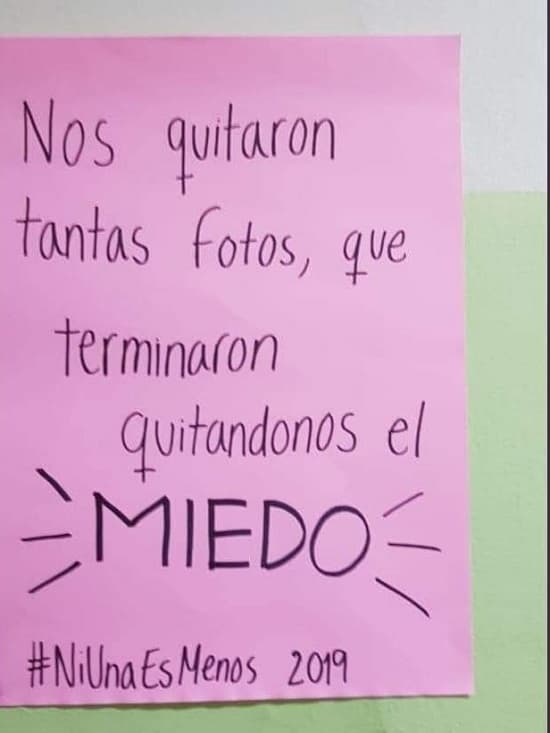 Nos quitaron
tantas fotos, que
terminaron
quitandonos el
MIEDO
#NiUnaEsMenos 2019